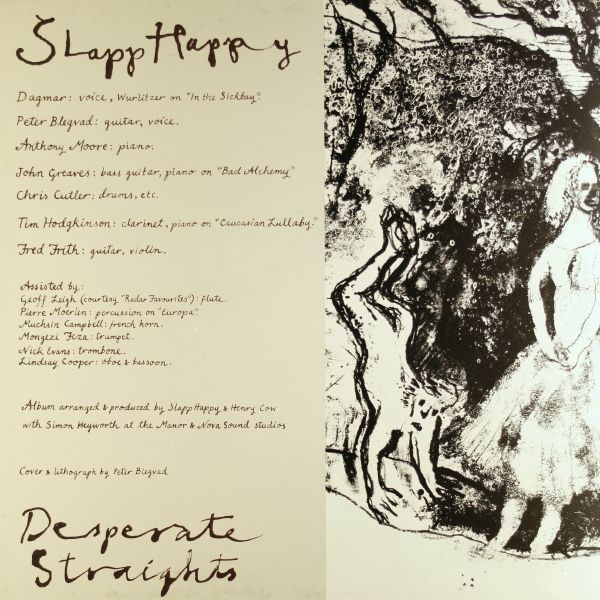 Slapp Happy
Dagmar: voice, Wurlitzer on "In the Sickbay".
Peter Blegvad: guitar, voice.
Anthony Moore: piano.
John Greaves: bass guitar, piano on "Bad Alchemy"
Chris Cutler: drums, etc.
Tim Hodgkinson: clarinet, piano on "Caucasian Lullaby."
Fred Frith: guitar, violin.
Assisted by:
Geoff Leigh (courtesy "Radar Favourites"): flute.
Pierre Moerlin: percussion on "Europa".
Muchsin Campbell: french horn.
Mongezi Feza: trumpet.
Nick Evans: trombone.
Lindsay Cooper: oboe & bassoon.
Album arranged & produced by Slapp Happy & Henry Cow
with Simon Heyworth at the Manor & Nova Sound studios
Cover & lithograph by Peter Blegvad
Desperate
Straights